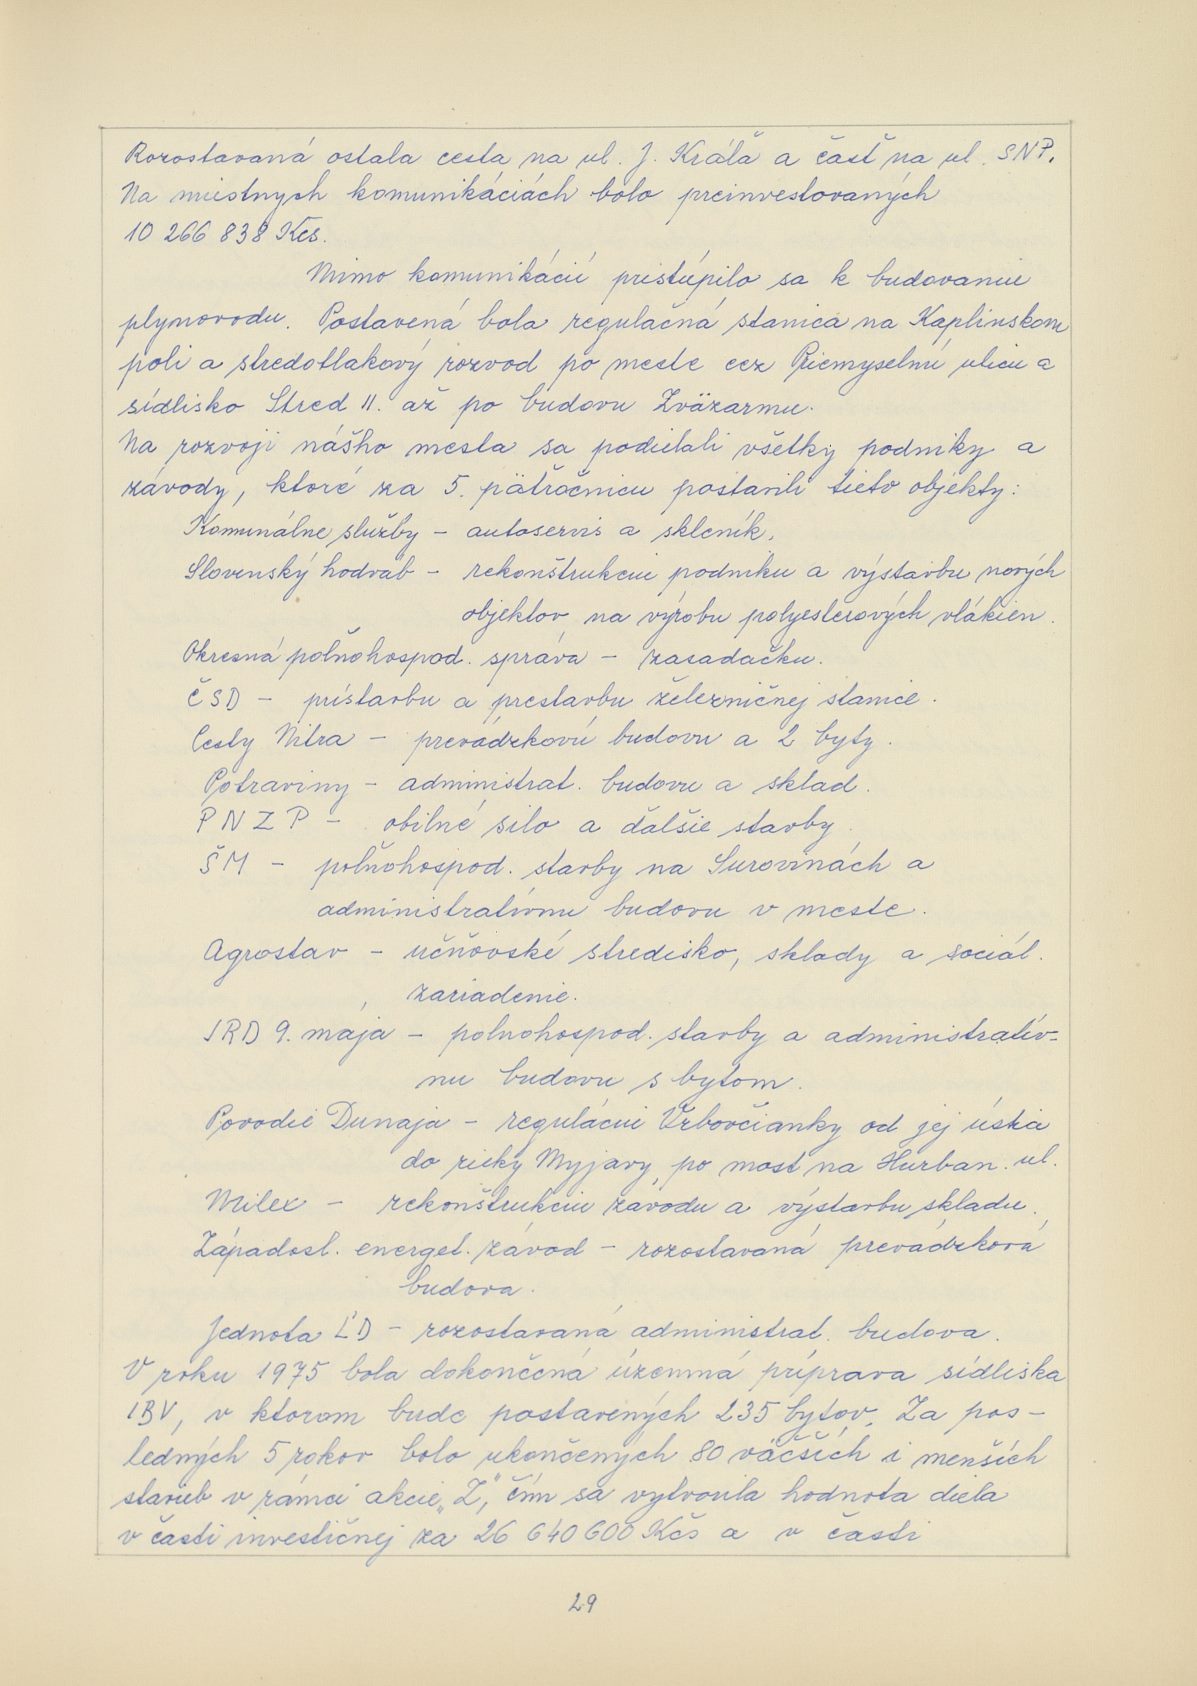 Rozostavaná ostala cesta na ul. J. Kráľa a časť na ul. SNP.
Na miestnych komunikáciách bolo preinvestovaných
10 266 838 Kčs.
Mimo komunikácií pristúpilo sa k budovaniu
plynovodu. Postavená bola regulačná stanica na Kaplinskom
poli a stredotlakový rozvod po meste cez Priemyselnú ulicu a
sídlisko Stred II. až po budovu Zväzarmu.
Na rozvoji nášho mesta sa podielali všetky podniky a
závody, ktoré za 5. päťročnicu postavili tieto objekty:
Komunálne služby – autoservis a skleník.
Slovenský hodváb – rekonštrukciu podniku a výstavbu nových
objektov na výrobu polyesterových vlákien.
Okresná poľnohospod. správa – zasadačku.
ČSD – prístavbu a prestavbu železničnej stanice.
Cesty Nitra – prevádzkovú budovu a 2 byty.
Potraviny – administrat. budovu a sklad.
PNZP – obilné silo a ďalšie stavby
ŠM – poľnohospod. stavby na Surovinách a
administratívnu budovu v meste.
Agrostav – učňovské stredisko, sklady a sociál.
zariadenie.
JRD 9. mája – polnohospod. stavby a administratív-
nu budovu s bytom.
Povodie Dunaja – reguláciu Vrbovčianky od jej ústia
do rieky Myjavy, po most na Hurban. ul.
Milex – rekonštrukciu závodu a výstavbu skladu.
Západosl. energet. závod – rozostavaná prevádzková
budova.
Jednota ĽD – rozostavaná administrat. budova.
V roku 1975 bola dokončená územná príprava sídliska
IBV, v ktorom bude postavených 235 bytov. Za pos-
ledných 5 rokov bolo ukončených 80 väčších i menších
stavieb v rámci akcie „Z", čím sa vytvorila hodnota diela
v časti investičnej za 26 640 600 Kčs a v časti
29